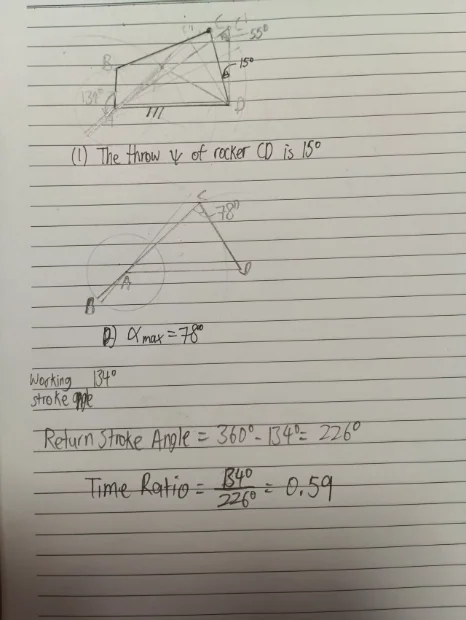 C C'
55°
B
15°
134°
A
D
(1) The throw ψ of rocker CD is 15°
C
78°
A
D
B
2) αmax = 78°
Working 134°
stroke angle
Return Stroke Angle = 360° - 134° = 226°
Time Ratio = 134° / 226° = 0.59